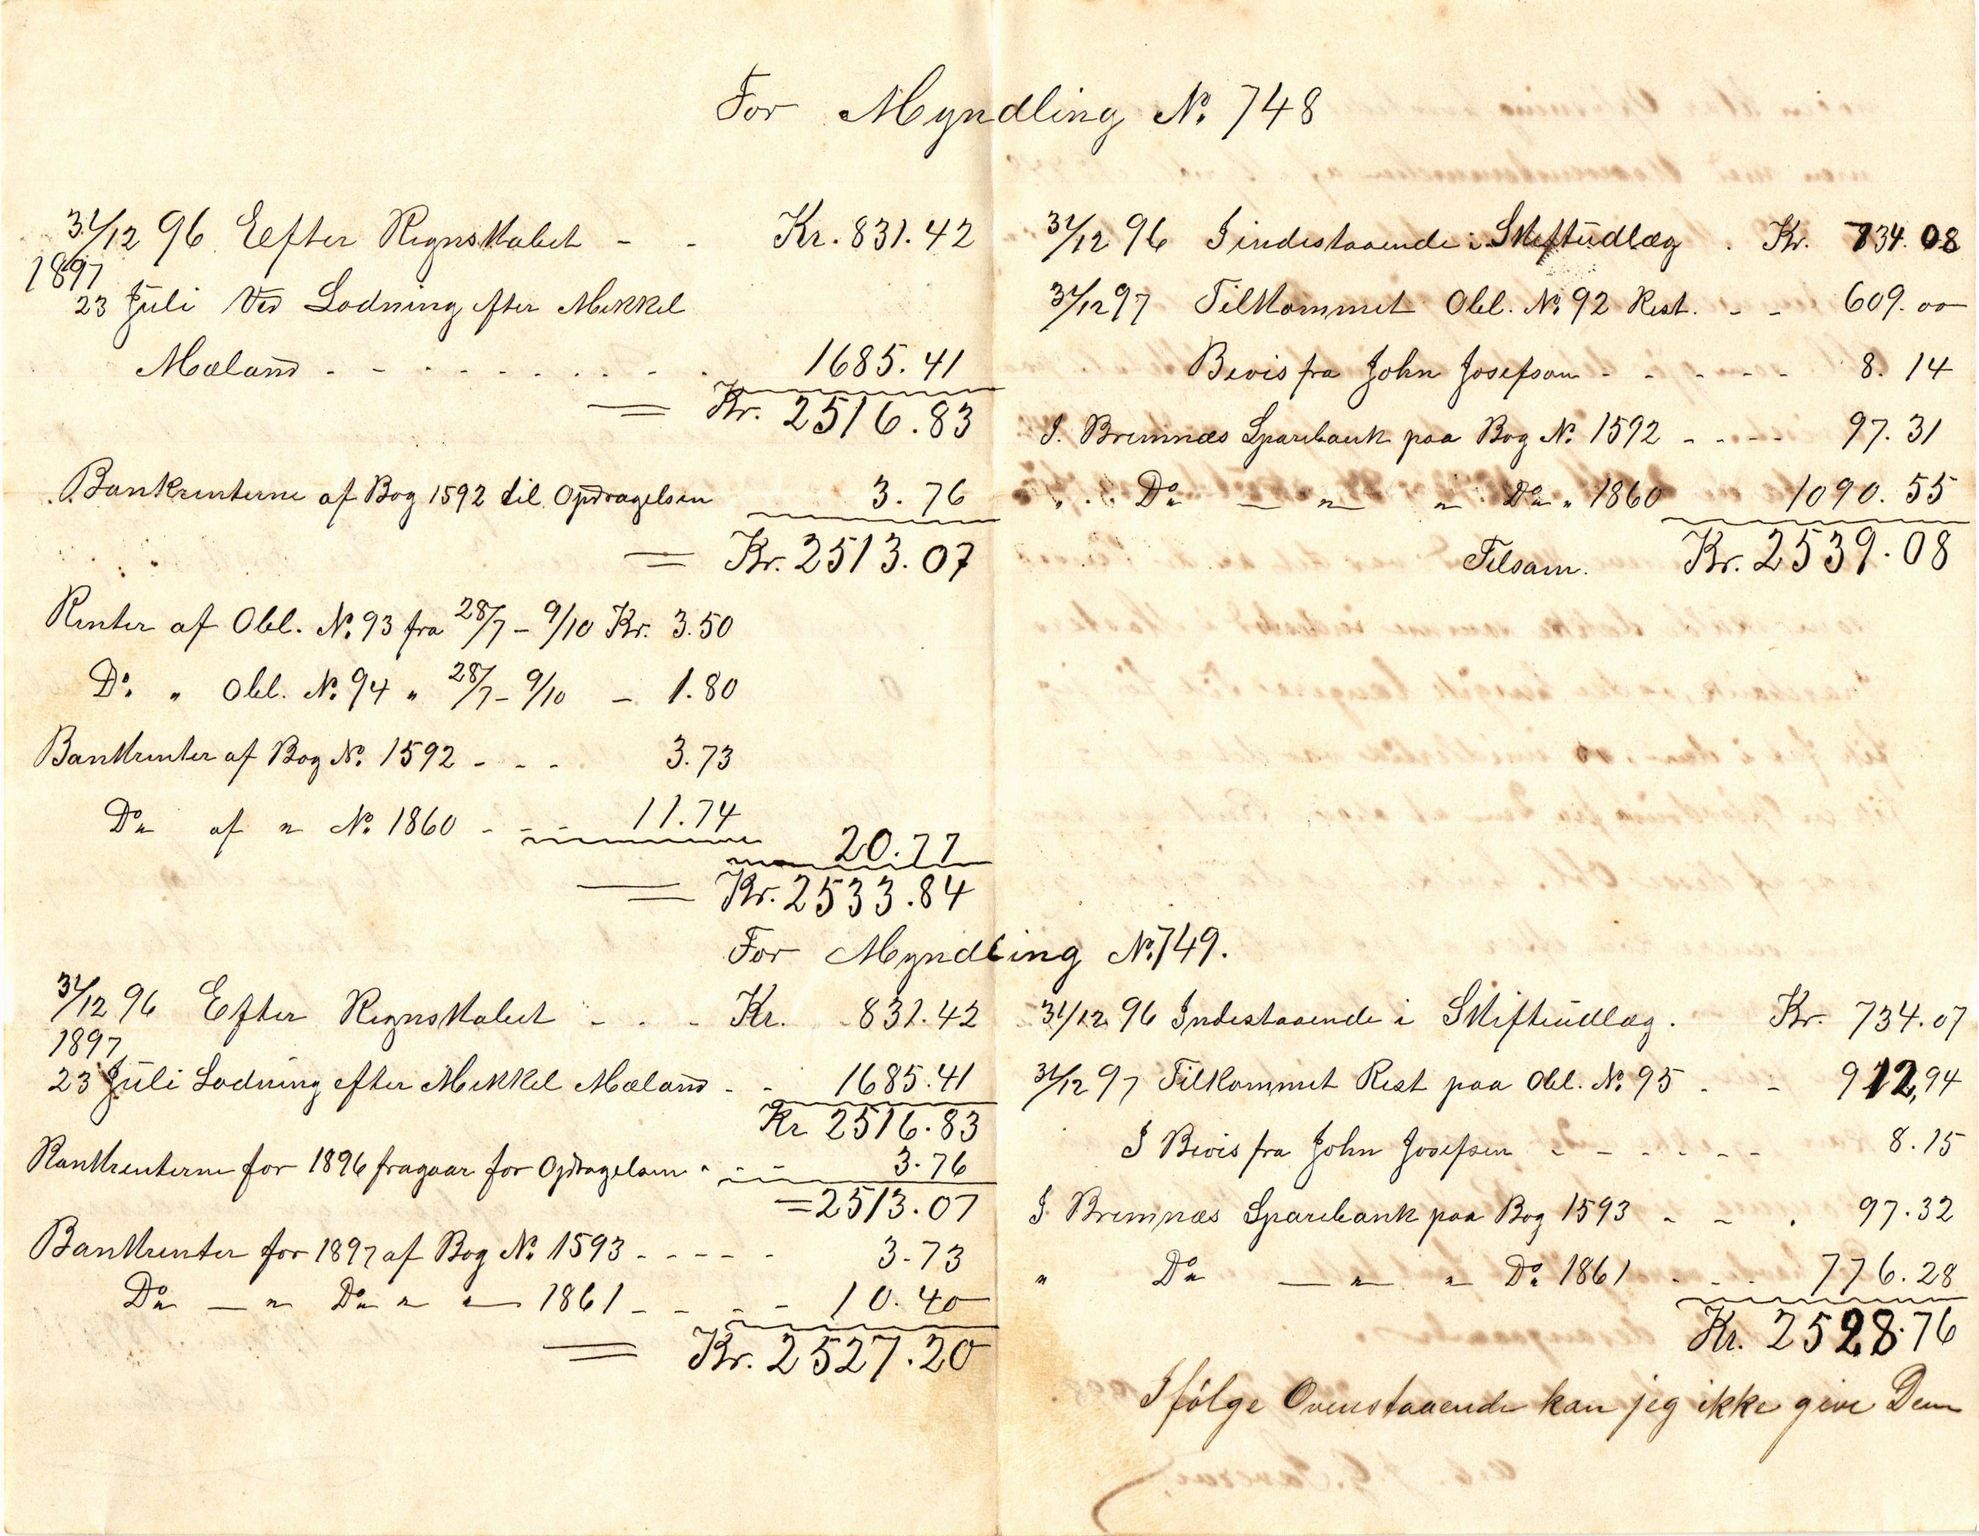 For Myndling No. 748
31/12 96 Eefter Regnskabet - - Kr. 831.42
1897
23 Juli Ved Lodning efter Mekkel
Mæland - - - - - - - - 1685.41
= Kr. 2516.83
Bankrenterne af Bog 1592 til Opdragelsen 3.76
= Kr. 2513.07
Renter af Obl. No. 93 fra 28/7 - 9/10 Kr. 3.50
Do. " Obl. No. 94 " 28/7 - 9/10 - 1.80
Bankrenter af Bog No. 1592 - - - 3.73
Do af " No. 1860 - - - 11.74
20.77
= Kr. 2533.84
31/12 96 Iindestaaende i Skiftudlæg . Kr. 734.08
31/12 97 Tilkommet Obl. No. 92 Rest. - - 609.00
Bevis fra John Josefson - - - - - 8.14
I. Bremnæs Sparebank paa Bog No. 1592 - - - - 97.31
" Do — " — " Do " 1860 1090.55
Tilsam. Kr. 2539.08
For Myndling No. 749.
31/12 96 Efter Regnskabet - - - Kr. 831.42
1897
23 Juli Lodning efter Mekkel Mæland - - 1685.41
Kr 2516.83
Bankrenterne for 1896 fragaar for Opdragelsen " - - 3.76
= 2513.07
Bankrenter for 1897 af Bog No. 1593 - - - - - 3.73
Do — " Do " " — 1861 - - - - 10.40
= Kr. 2527.20
31/12 96 Indestaaende i Skiftudlæg. Kr. 734.07
31/12 97 Tilkommet Rest paa Obl. No. 95 . - 912,94
I Bevis fra John Josefsen - - - - - 8.15
I. Bremnæs Sparebank paa Bog 1593 - - . 97.32
" Do — " — " Do. 1861 - - - 776.28
Kr. 2528.76
Ifølge Ovenstaaende kan jeg ikke give Dem